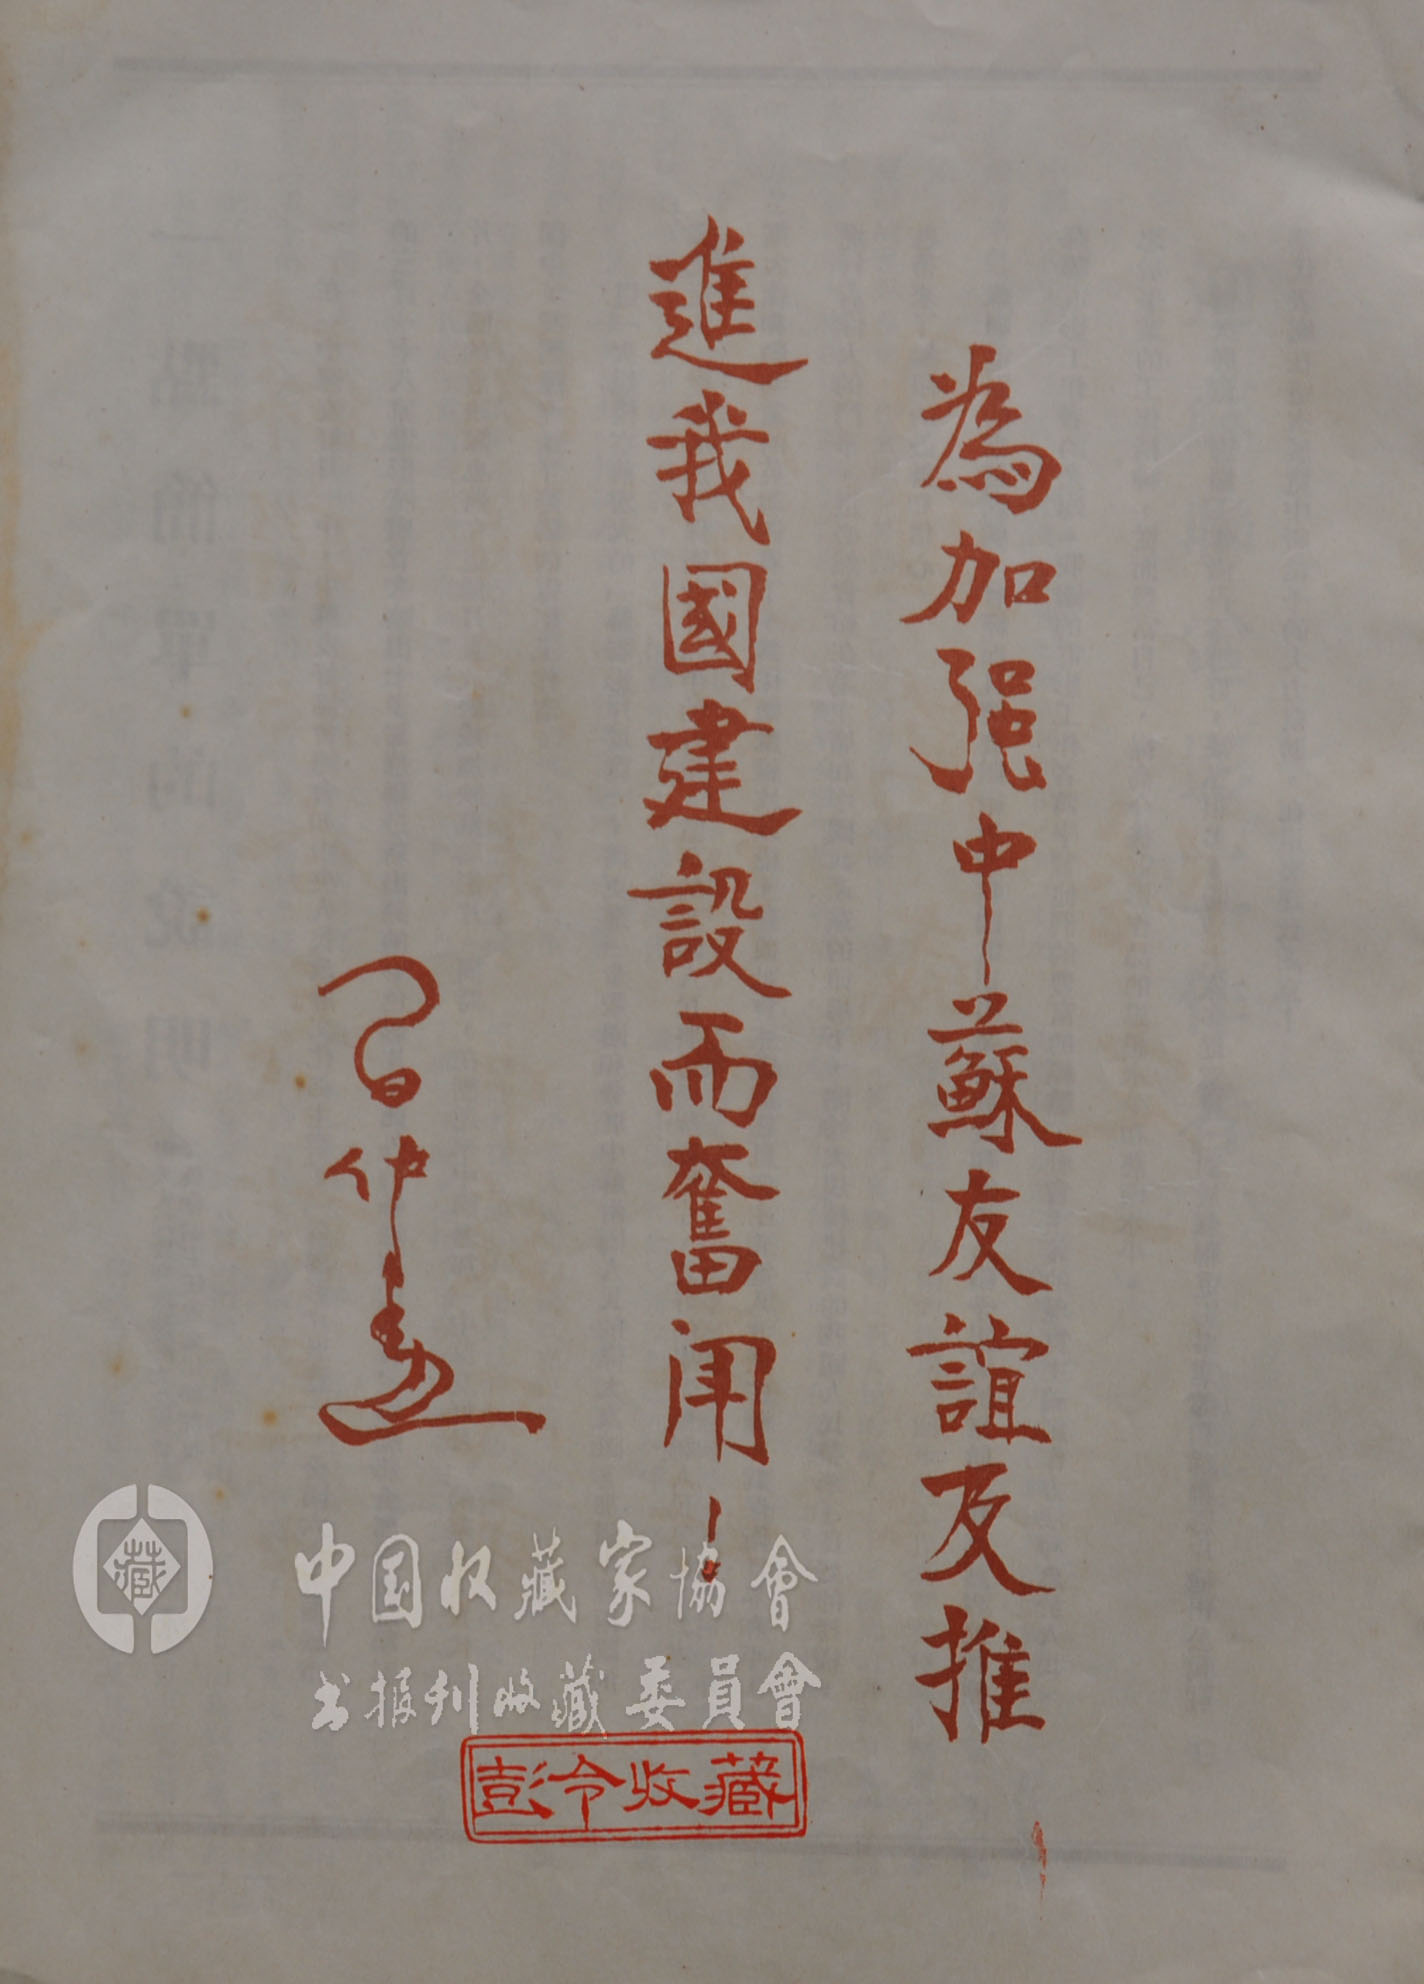 為加强中蘇友誼及推
進我國建設而奮鬥！
習仲勳
藏
中国收藏家協會
书报刊收藏委員會
彭令收藏